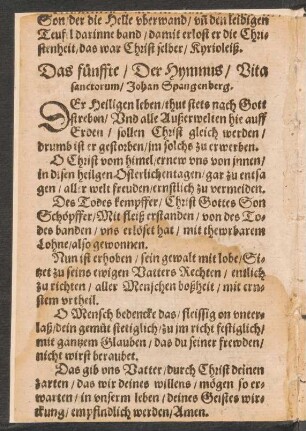 Son der die Helle vberwand / vñ den leidigen
Teufl darinne band / damit erlost er die Chri-
stenheit / das war Christ selber / Kyrioleiß.
Das fünffte / Der Hymnus / Vita
sanctorum / Johan Spangenberg.
DEr Heiligen leben / thut stets nach Gott
streben / Vnd alle Außerwelten hie auff
Erden / sollen Christ gleich werden /
drumb ist er gestorben / jm solchs zu erwerben.
O Christ vom himel / ernew vns von jnnen /
in disen heilgen Osterlichentagen / gar zu entsa
gen / aller welt freuden / ernstlich zu vermeiden.
Des Todes kempffer / Christ Gottes Son
Schöpffer / Mit fleiß erstanden / von des To-
des banden / vns erlöset hat / mit thewrbarem
Lohne / also gewonnen.
Nun ist erhoben / sein gewalt mit lobe / Si-
tzet zu seins ewigen Vatters Rechten / entlich
zu richten / aller Menschen boßheit / mit ern-
stem vrtheil.
O Mensch bedencke das / fleissig on vnter-
laß / dein gemüt stetiglich / zu jm richt festiglich /
mit gantzem Glauben / das du seiner frewden /
nicht wirst beraubet.
Das gib vns Vatter / durch Christ deinen
zarten / das wir deines willens / mögen so er-
warten / in vnserm leben / deines Geistes wir-
ckung / empfindlich werden / Amen.